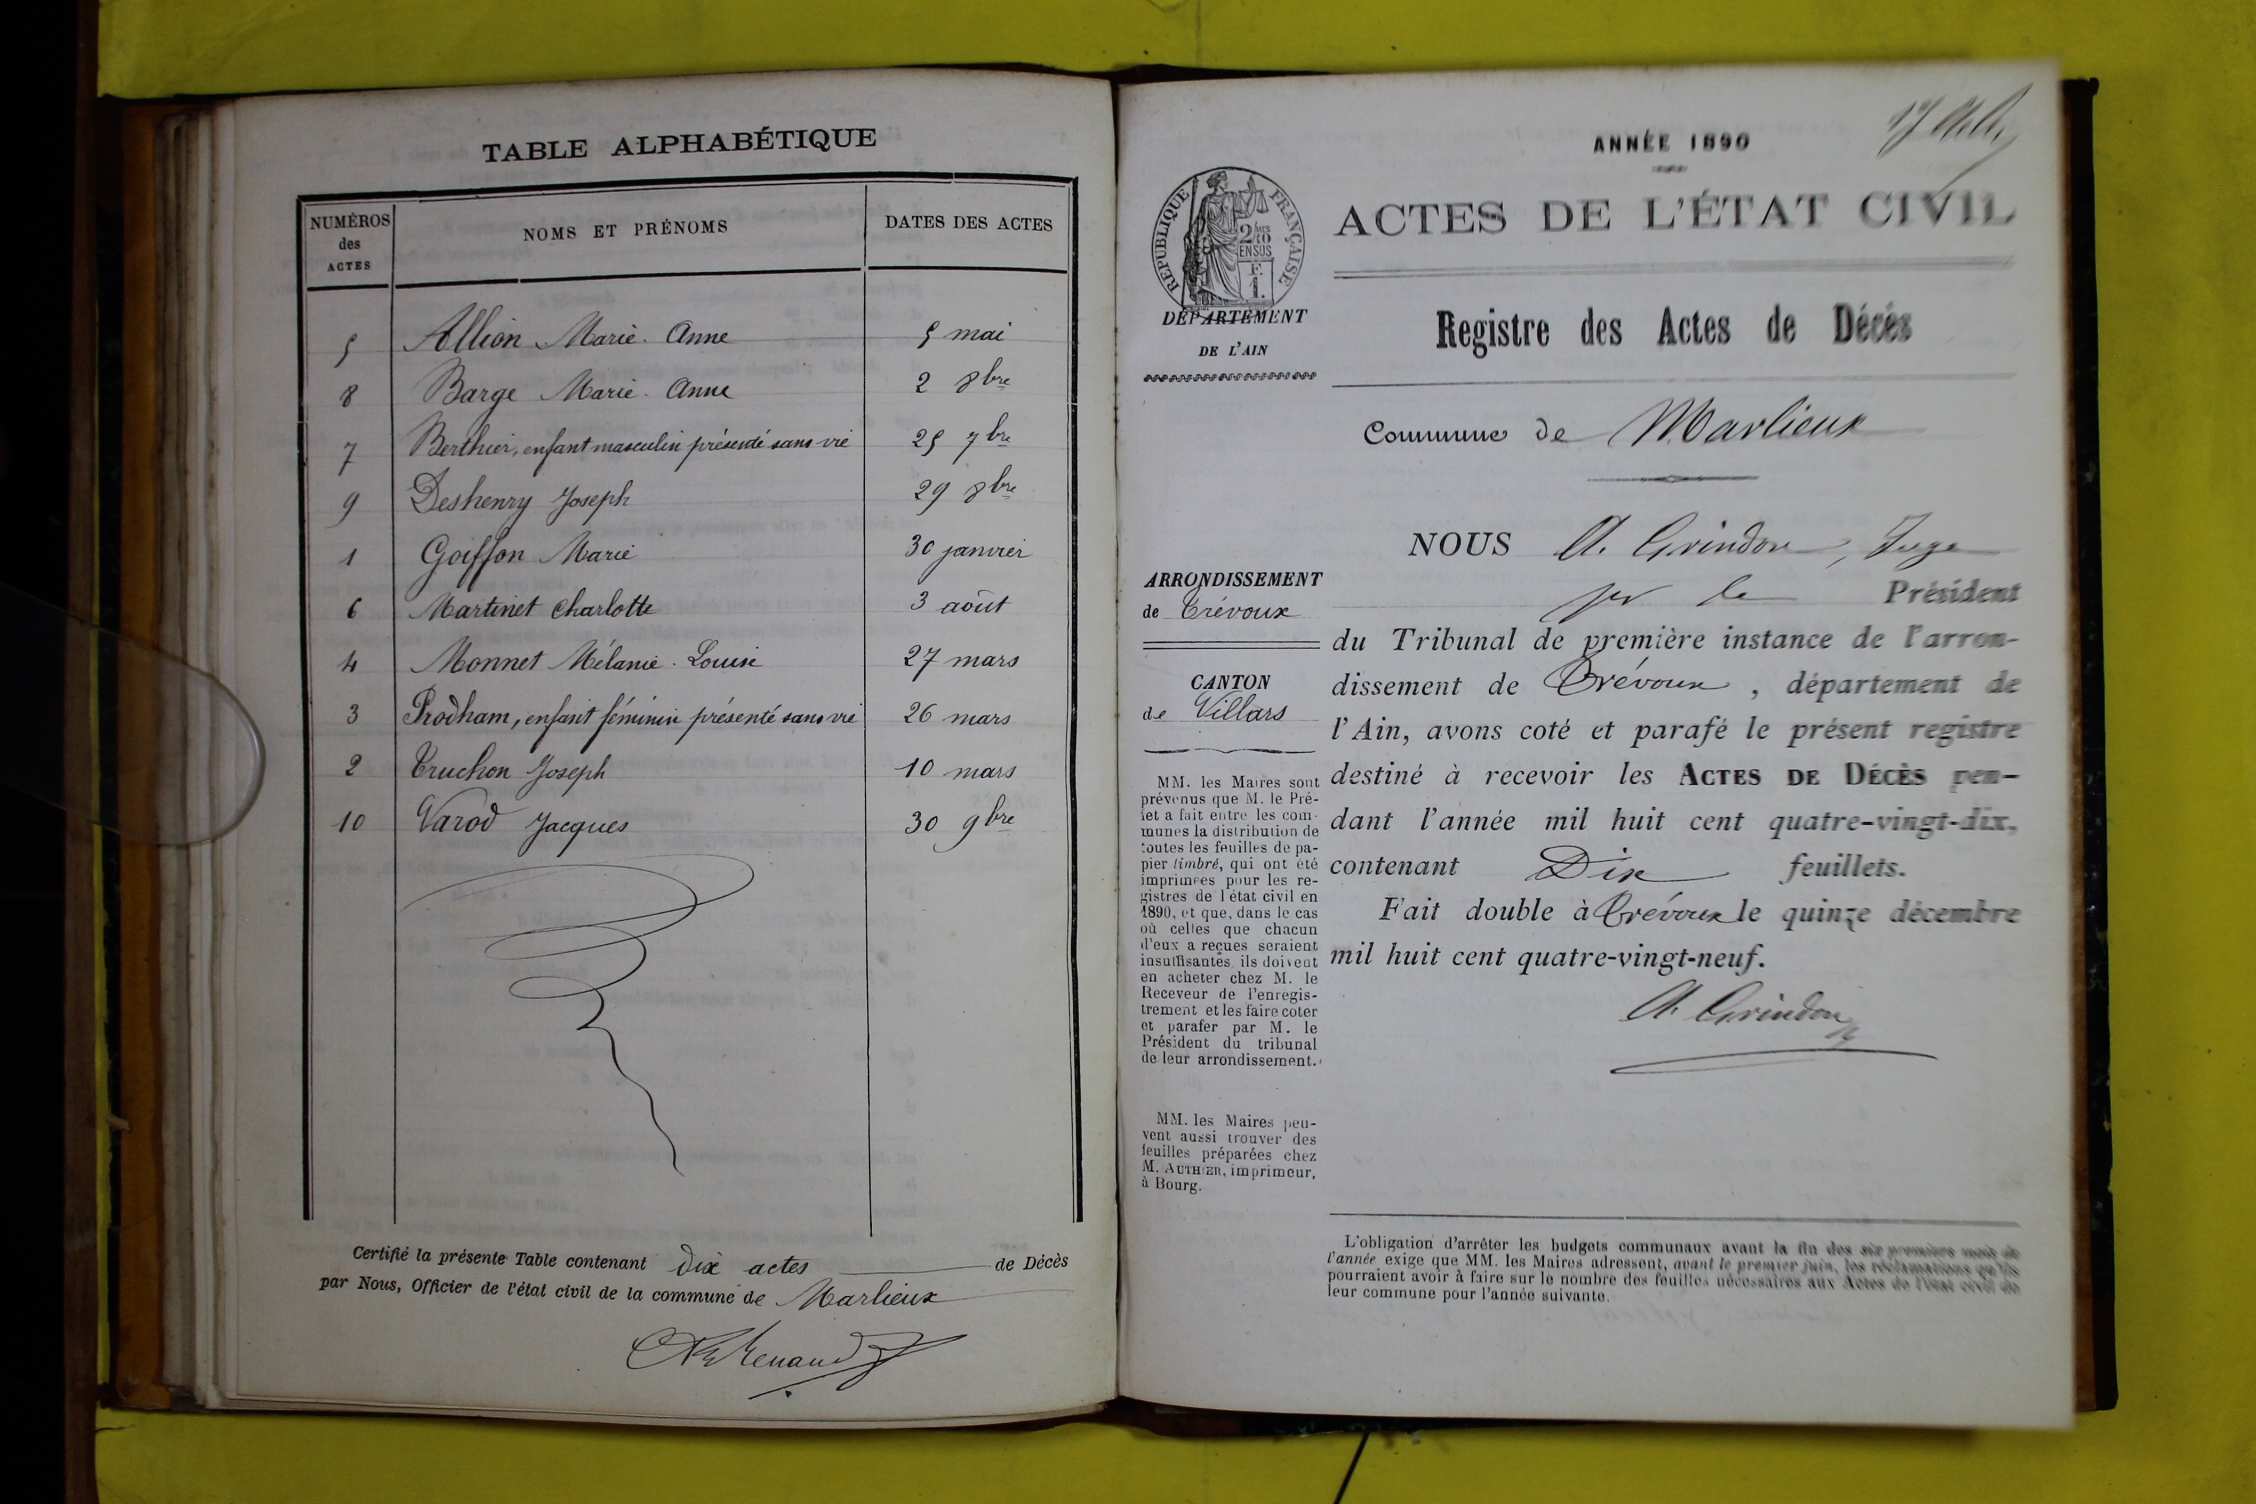 TABLE ALPHABÉTIQUE
NUMÉROS des ACTES NOMS ET PRÉNOMS DATES DES ACTES
5 Allion Marie-Anne 5 mai
8 Barge Marie-Anne 2 8bre
7 Berthier, enfant masculin présenté sans vie 25 7bre
9 Deshenry Joseph 29 8bre
1 Goiffon Marie 30 janvier
6 Martinet Charlotte 3 août
4 Monnet Mélanie-Louise 27 mars
3 Prodham, enfant féminin présenté sans vie 26 mars
2 Truchon Joseph 10 mars
10 Varod Jacques 30 9bre
Certifié la présente Table contenant dix actes de Décès
par Nous, Officier de l'état civil de la commune de Marlieux
Renaud
ANNÉE 1890
RÉPUBLIQUE FRANÇAISE
ACTES DE L'ÉTAT CIVIL
DÉPARTEMENT
DE L'AIN
Registre des Actes de Décès
Commune de Marlieux
ARRONDISSEMENT
de Trévoux
CANTON
de Villars
MM. les Maires sont
prévenus que M. le Pré-
fet a fait entre les com-
munes la distribution de
toutes les feuilles de pa-
pier timbré, qui ont été
imprimées pour les re-
gistres de l'état civil en
1890, et que, dans le cas
où celles que chacun
d'eux a reçues seraient
insuffisantes, ils doivent
en acheter chez M. le
Receveur de l'enregis-
trement et les faire coter
et parafer par M. le
Président du tribunal
de leur arrondissement.
MM. les Maires peu-
vent aussi trouver des
feuilles préparées chez
M. AUTHIER, imprimeur,
à Bourg.
NOUS A. Grindon, Juge
pr le Président
du Tribunal de première instance de l'arron-
dissement de Trévoux, département de
l'Ain, avons coté et parafé le présent registre
destiné à recevoir les ACTES DE DÉCÈS pen-
dant l'année mil huit cent quatre-vingt-dix,
contenant Dix feuillets.
Fait double à Trévoux le quinze décembre
mil huit cent quatre-vingt-neuf.
A. Grindon
L'obligation d'arrêter les budgets communaux avant la fin des six premiers mois de
l'année exige que MM. les Maires adressent, avant le premier juin, les réclamations qu'ils
pourraient avoir à faire sur le nombre des feuilles nécessaires aux Actes de l'état civil de
leur commune pour l'année suivante.